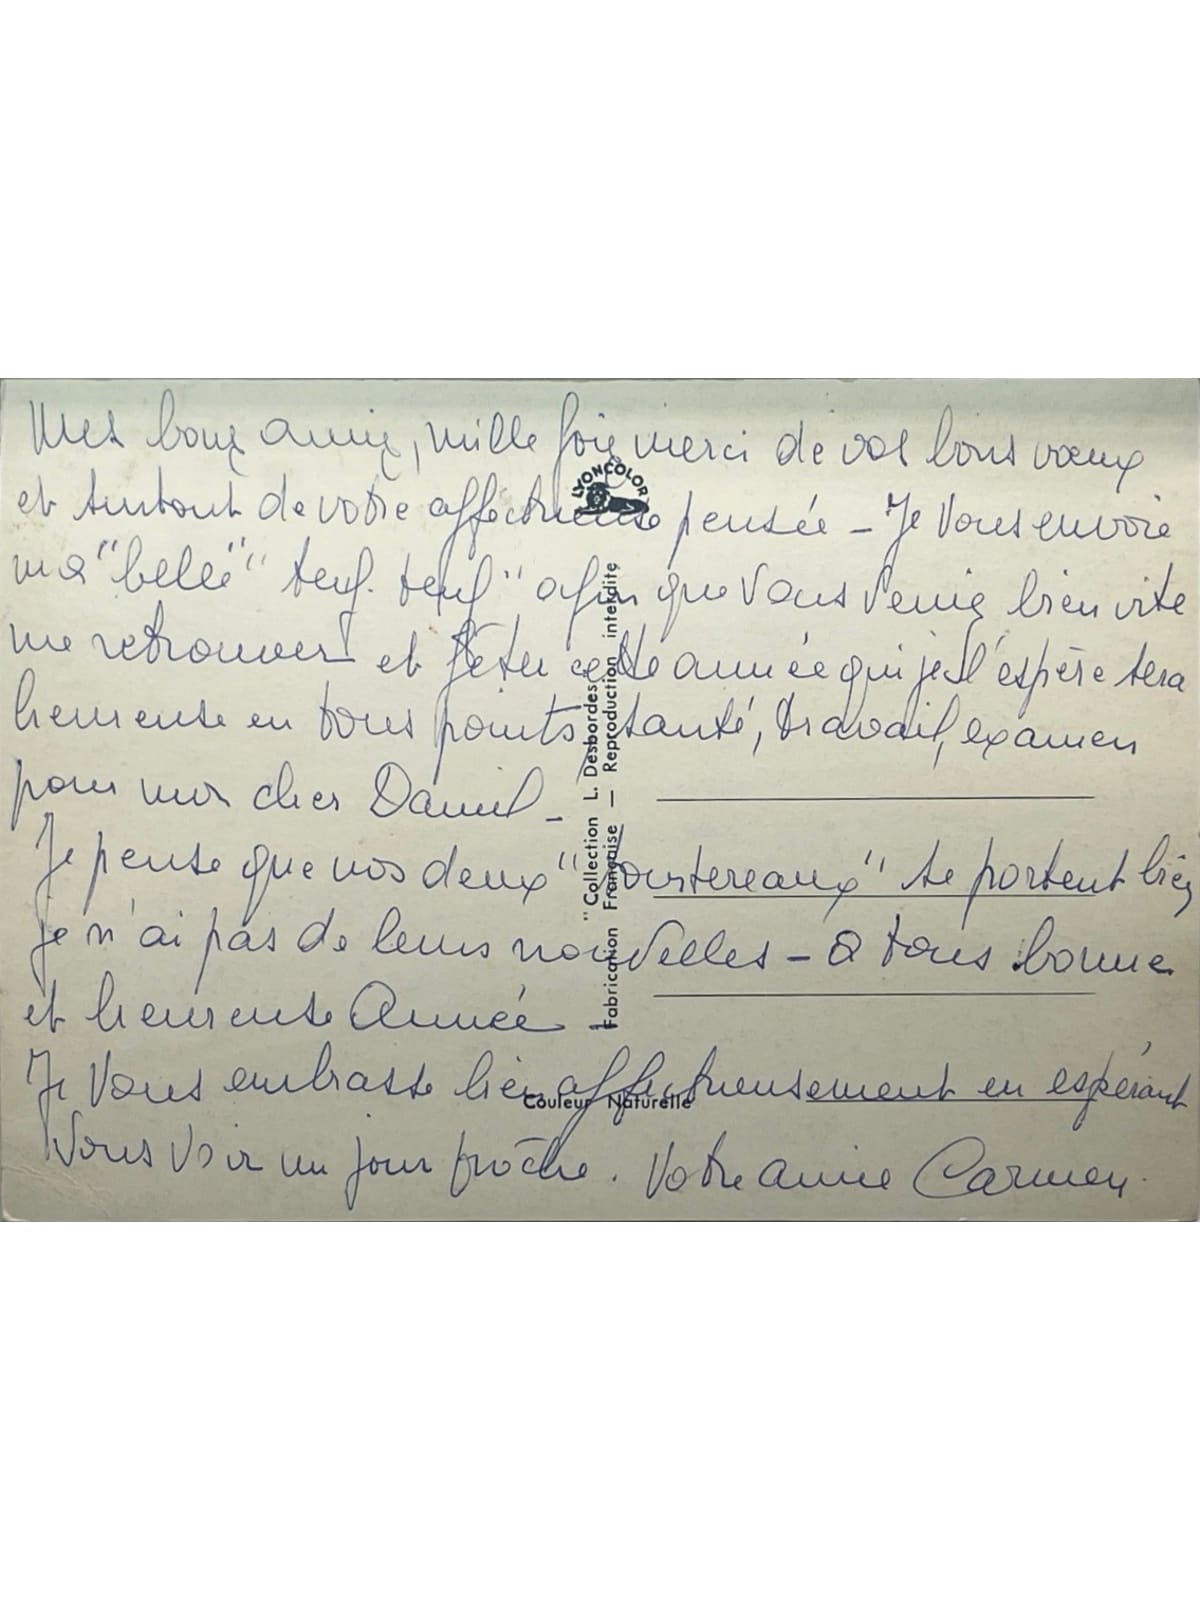 Mes bons amis, mille fois merci de vos bons vœux
et surtout de votre affectueuse pensée - Je vous envoie
ma "belle" "teuf. teuf" afin que vous veniez bien vite
me retrouver et fêter cette année qui je l'espère sera
heureuse en tous points, santé, travail, examen
pour mon cher Daniel -
Je pense que nos deux "tourtereaux" se portent bien
je n'ai pas de leurs nouvelles - à tous bonne
et heureuse Année -
Je vous embrasse bien affectueusement en espérant
vous voir un jour prôche. Votre amie Carmen.
LYONCOLOR
"Collection L. Desbordes"
Fabrication Française — Reproduction interdite
Couleur Naturelle